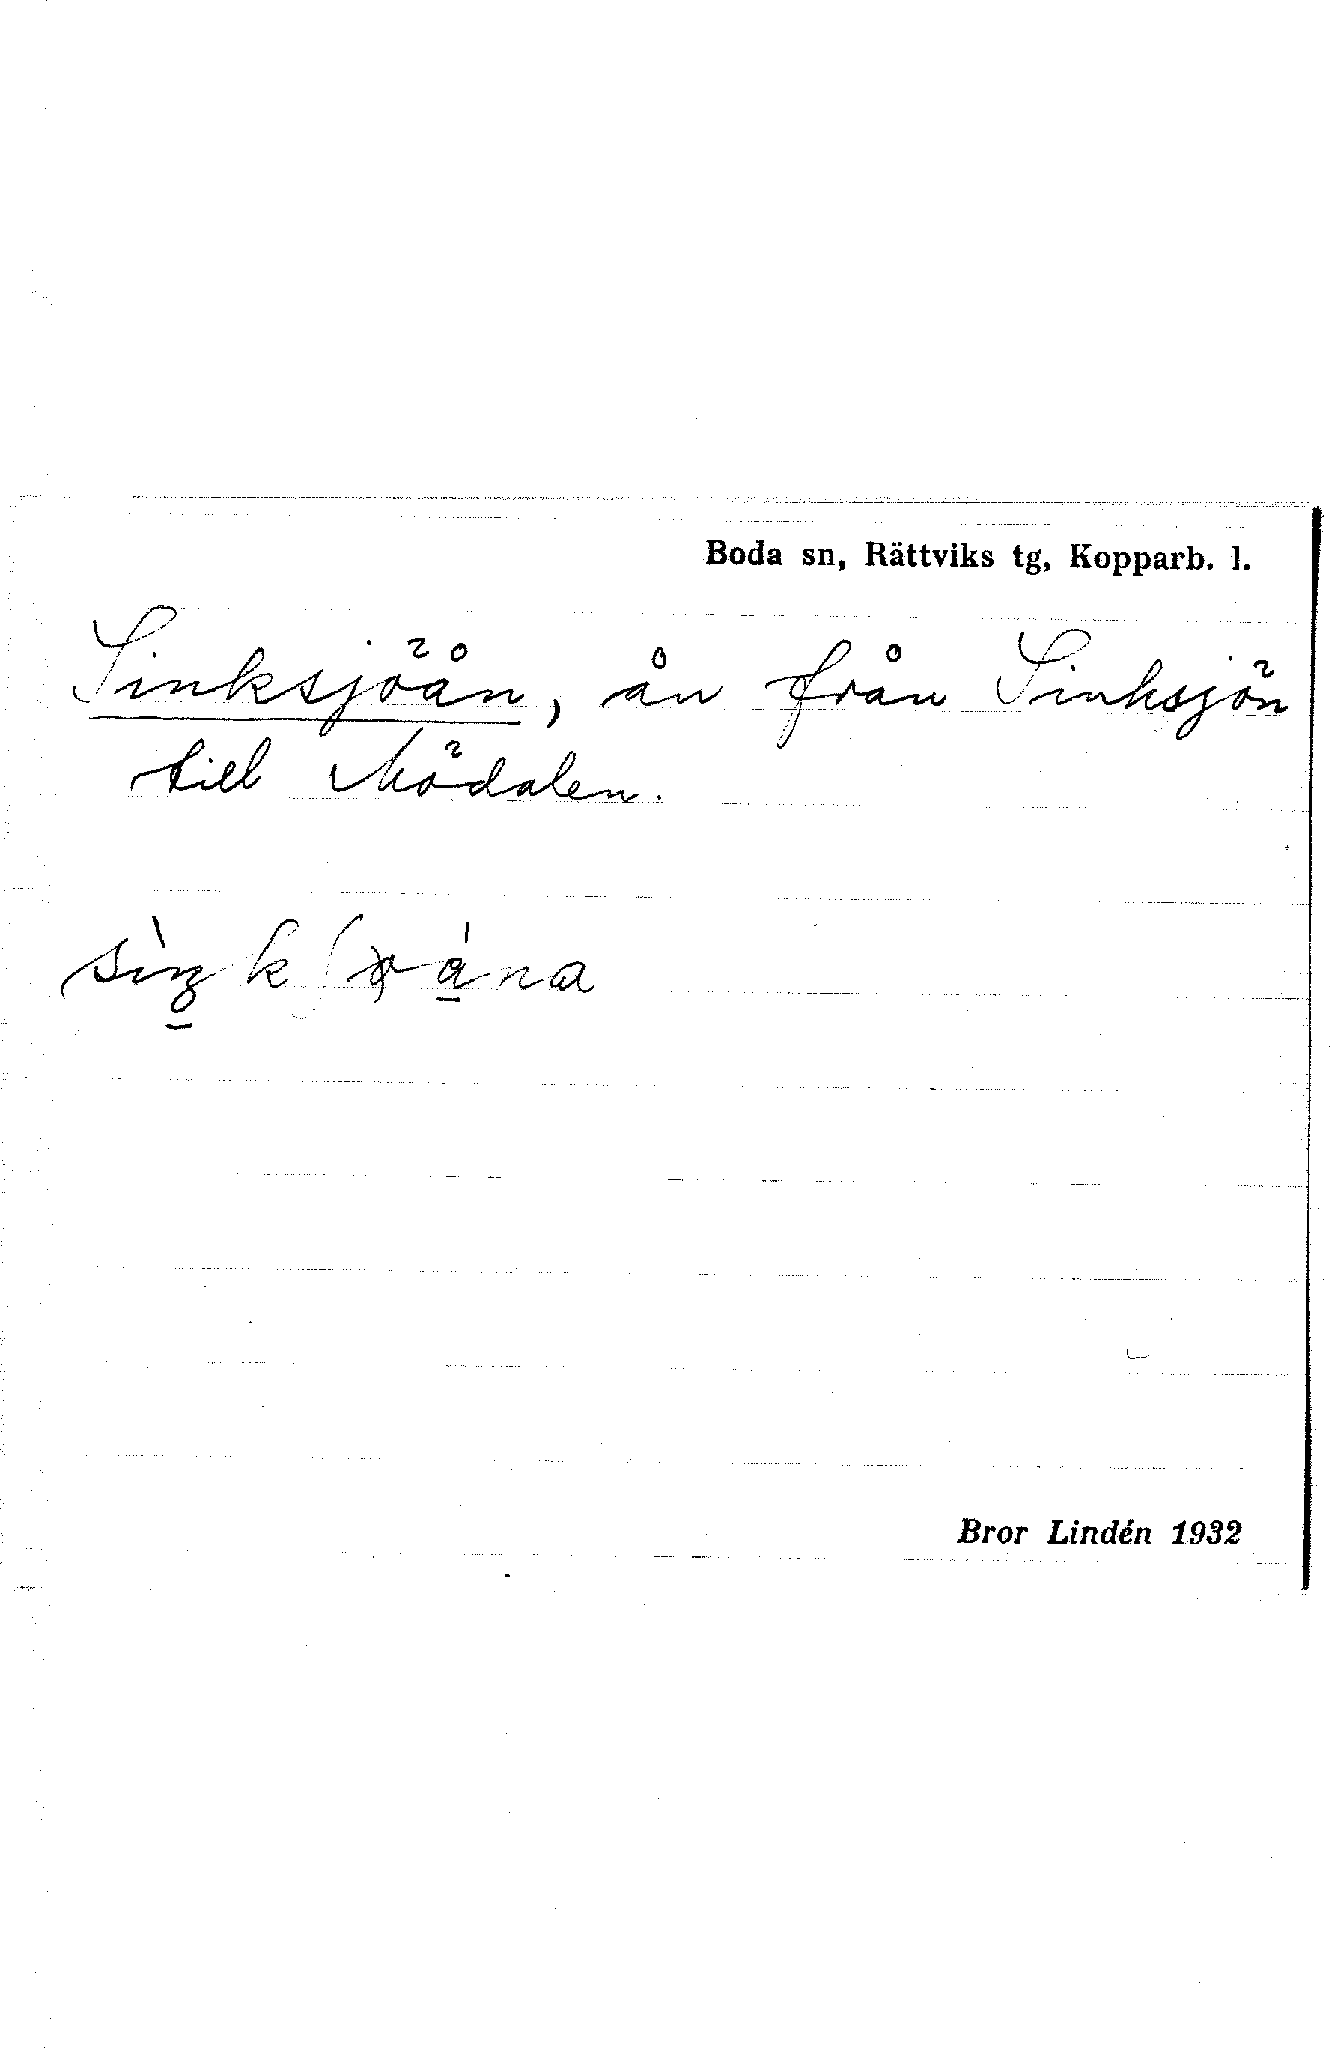 Boda sn, Rättviks tg, Kopparb. l.
Sinksjöån, ån från Sinksjön
till Mödalen.
Bror Lindén 1932